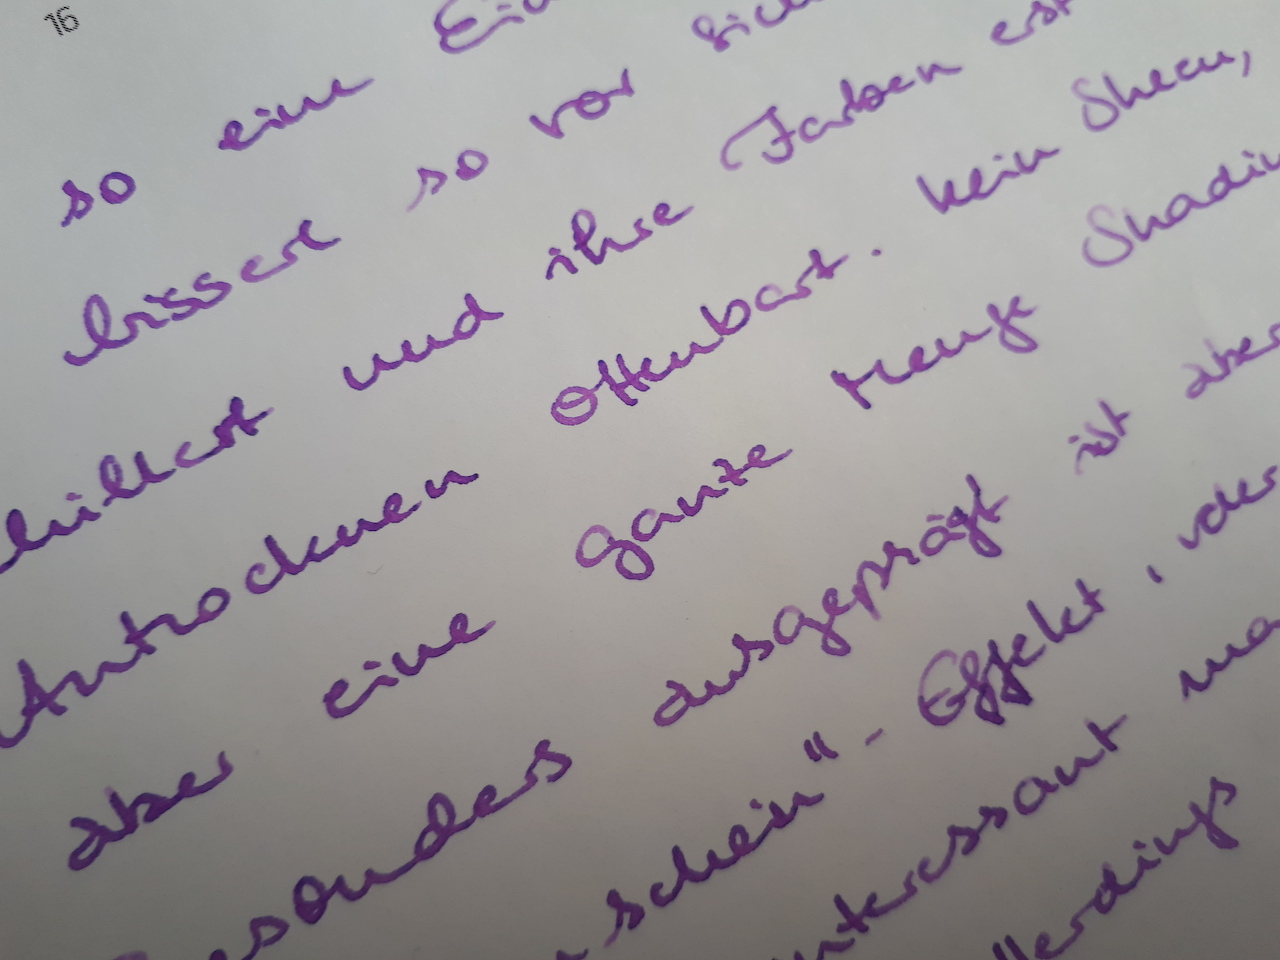 16
so eine
bisserl so vor
hüllest und ihre Farben erst
Antrocknen offenbart. Kein Sheen,
aber eine ganze Menge
besonders ausgeprägt ist aber
schein"-Effekt, der
interessant
llerdings